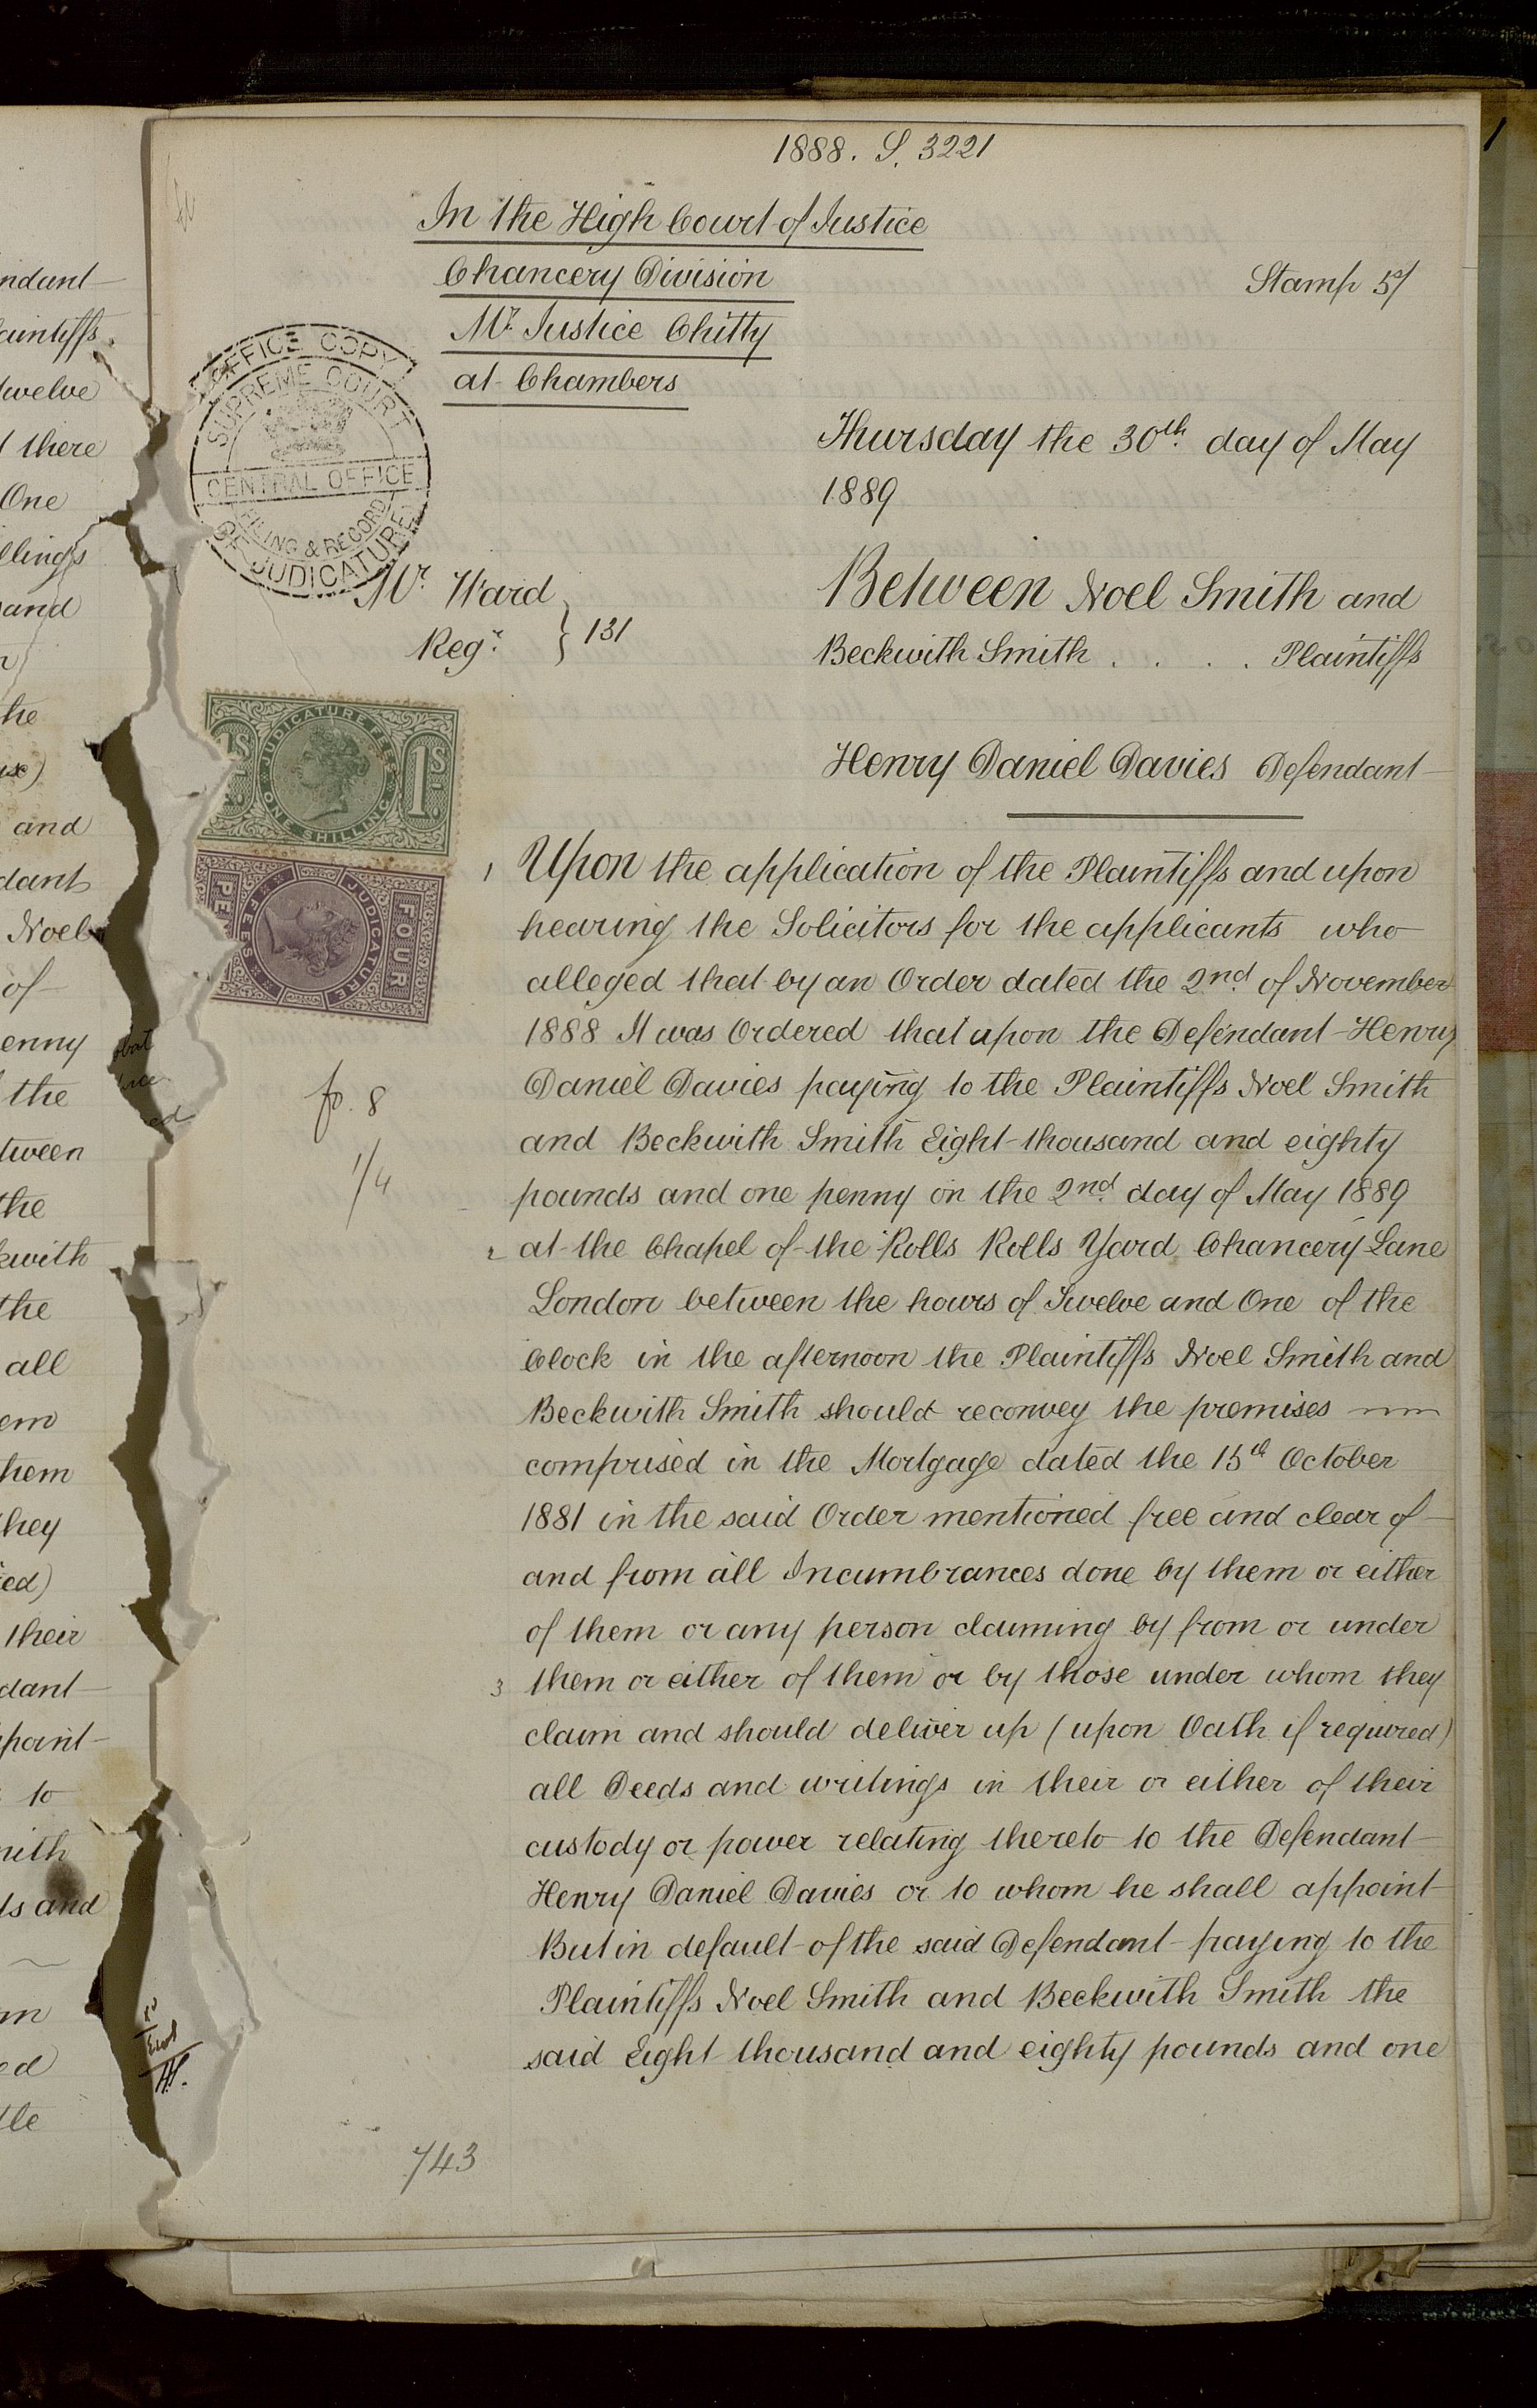 ndant
aintiffs
twelve
there
One
llings
and
he
and
dant
Noel
of
enny
the
tween
the
kwith
the
all
em
hem
they
ed)
their
dant
point
to
mith
ds and
ed
tle
1888. S. 3221
1
In the High Court of Justice
Chancery Division
Stamp 5/
Mr. Justice Chitty
at Chambers
OFFICE COPY
SUPREME COURT
CENTRAL OFFICE
FILING & RECORD
OF JUDICATURE
Thursday the 30th day of May
1889
Mr. Ward
Regr. } 131
Between Noel Smith and
Beckwith Smith . . . . Plaintiffs
Henry Daniel Davies Defendant
JUDICATURE FEES
1S
ONE SHILLING
FOUR
PE
JUDICATURE
FEES
fo. 8
1/4
1 Upon the application of the Plaintiffs and upon
hearing the Solicitors for the applicants who
alleged that by an Order dated the 2nd of November
1888 It was Ordered that upon the Defendant Henry
Daniel Davies paying to the Plaintiffs Noel Smith
and Beckwith Smith Eight thousand and eighty
pounds and one penny on the 2nd day of May 1889
2 at the Chapel of the Rolls Rolls Yard Chancery Lane
London between the hours of Twelve and One of the
Clock in the afternoon the Plaintiffs Noel Smith and
Beckwith Smith should reconvey the premises
comprised in the Mortgage dated the 15th October
1881 in the said Order mentioned free and clear of
and from all Incumbrances done by them or either
of them or any person claiming by from or under
3 them or either of them or by those under whom they
claim and should deliver up (upon Oath if required)
all Deeds and writings in their or either of their
custody or power relating thereto to the Defendant
Henry Daniel Davies or to whom he shall appoint
But in default of the said Defendant paying to the
Plaintiffs Noel Smith and Beckwith Smith the
said Eight thousand and eighty pounds and one
743